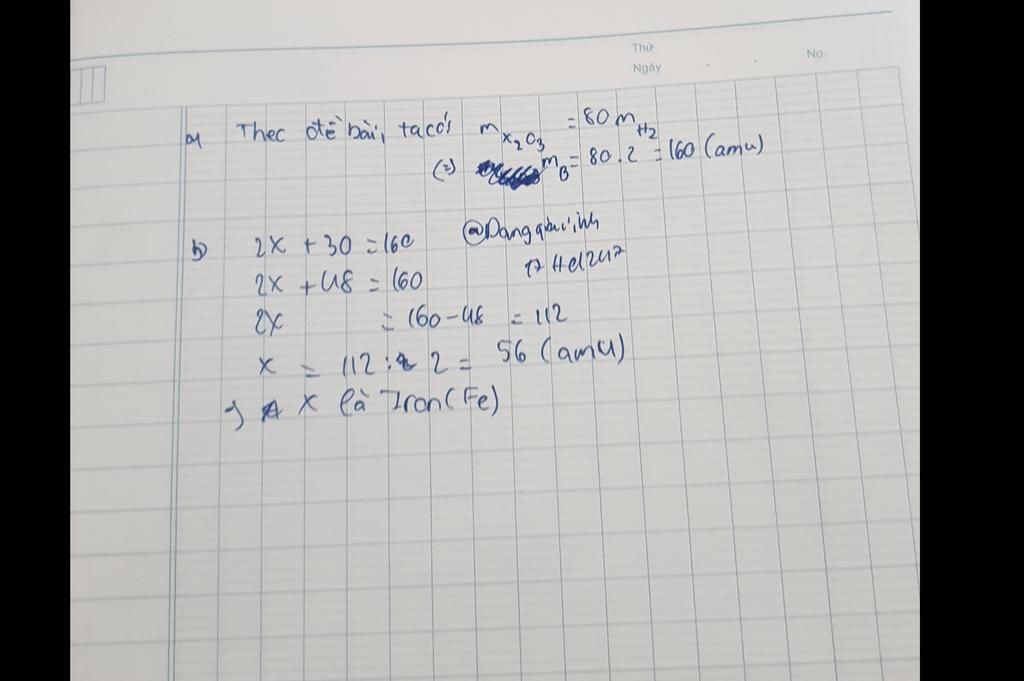 Thứ
Ngày
No.
a) Theo đề bài, ta có: m X₂O₃ = 80 m H₂
(=) m B = 80 . 2 = 160 (amu)
b) 2X + 3O = 160
2X + 48 = 160
2X = 160 - 48 = 112
X = 112 : 2 = 56 (amu)
X là Iron (Fe)